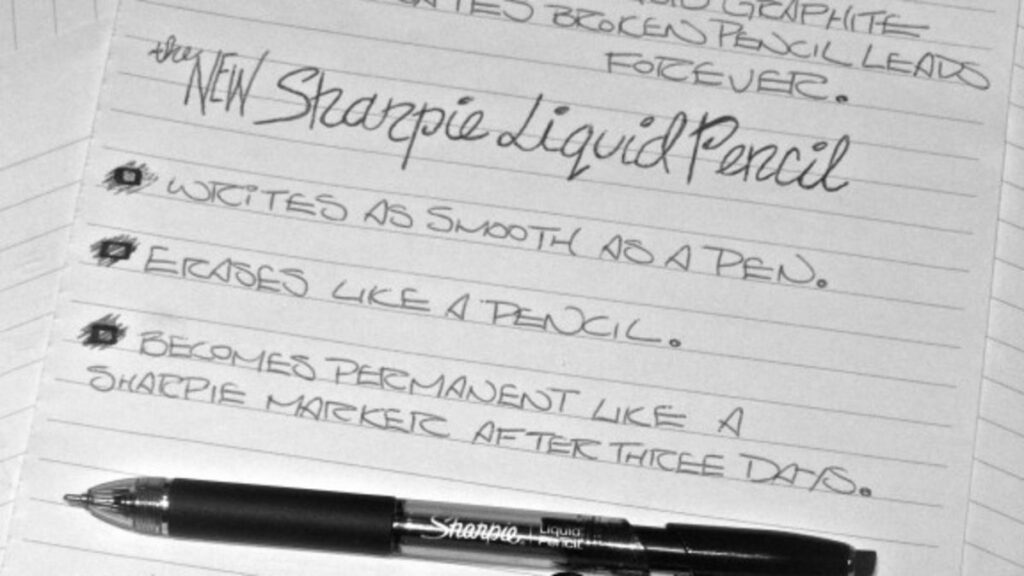 GRAPHITE
BROKEN PENCIL LEADS
FOREVER.
the NEW Sharpie Liquid Pencil
WRITES AS SMOOTH AS A PEN.
ERASES LIKE A PENCIL.
BECOMES PERMANENT LIKE A
SHARPIE MARKER AFTER THREE DAYS.
Sharpie. Liquid
Pencil